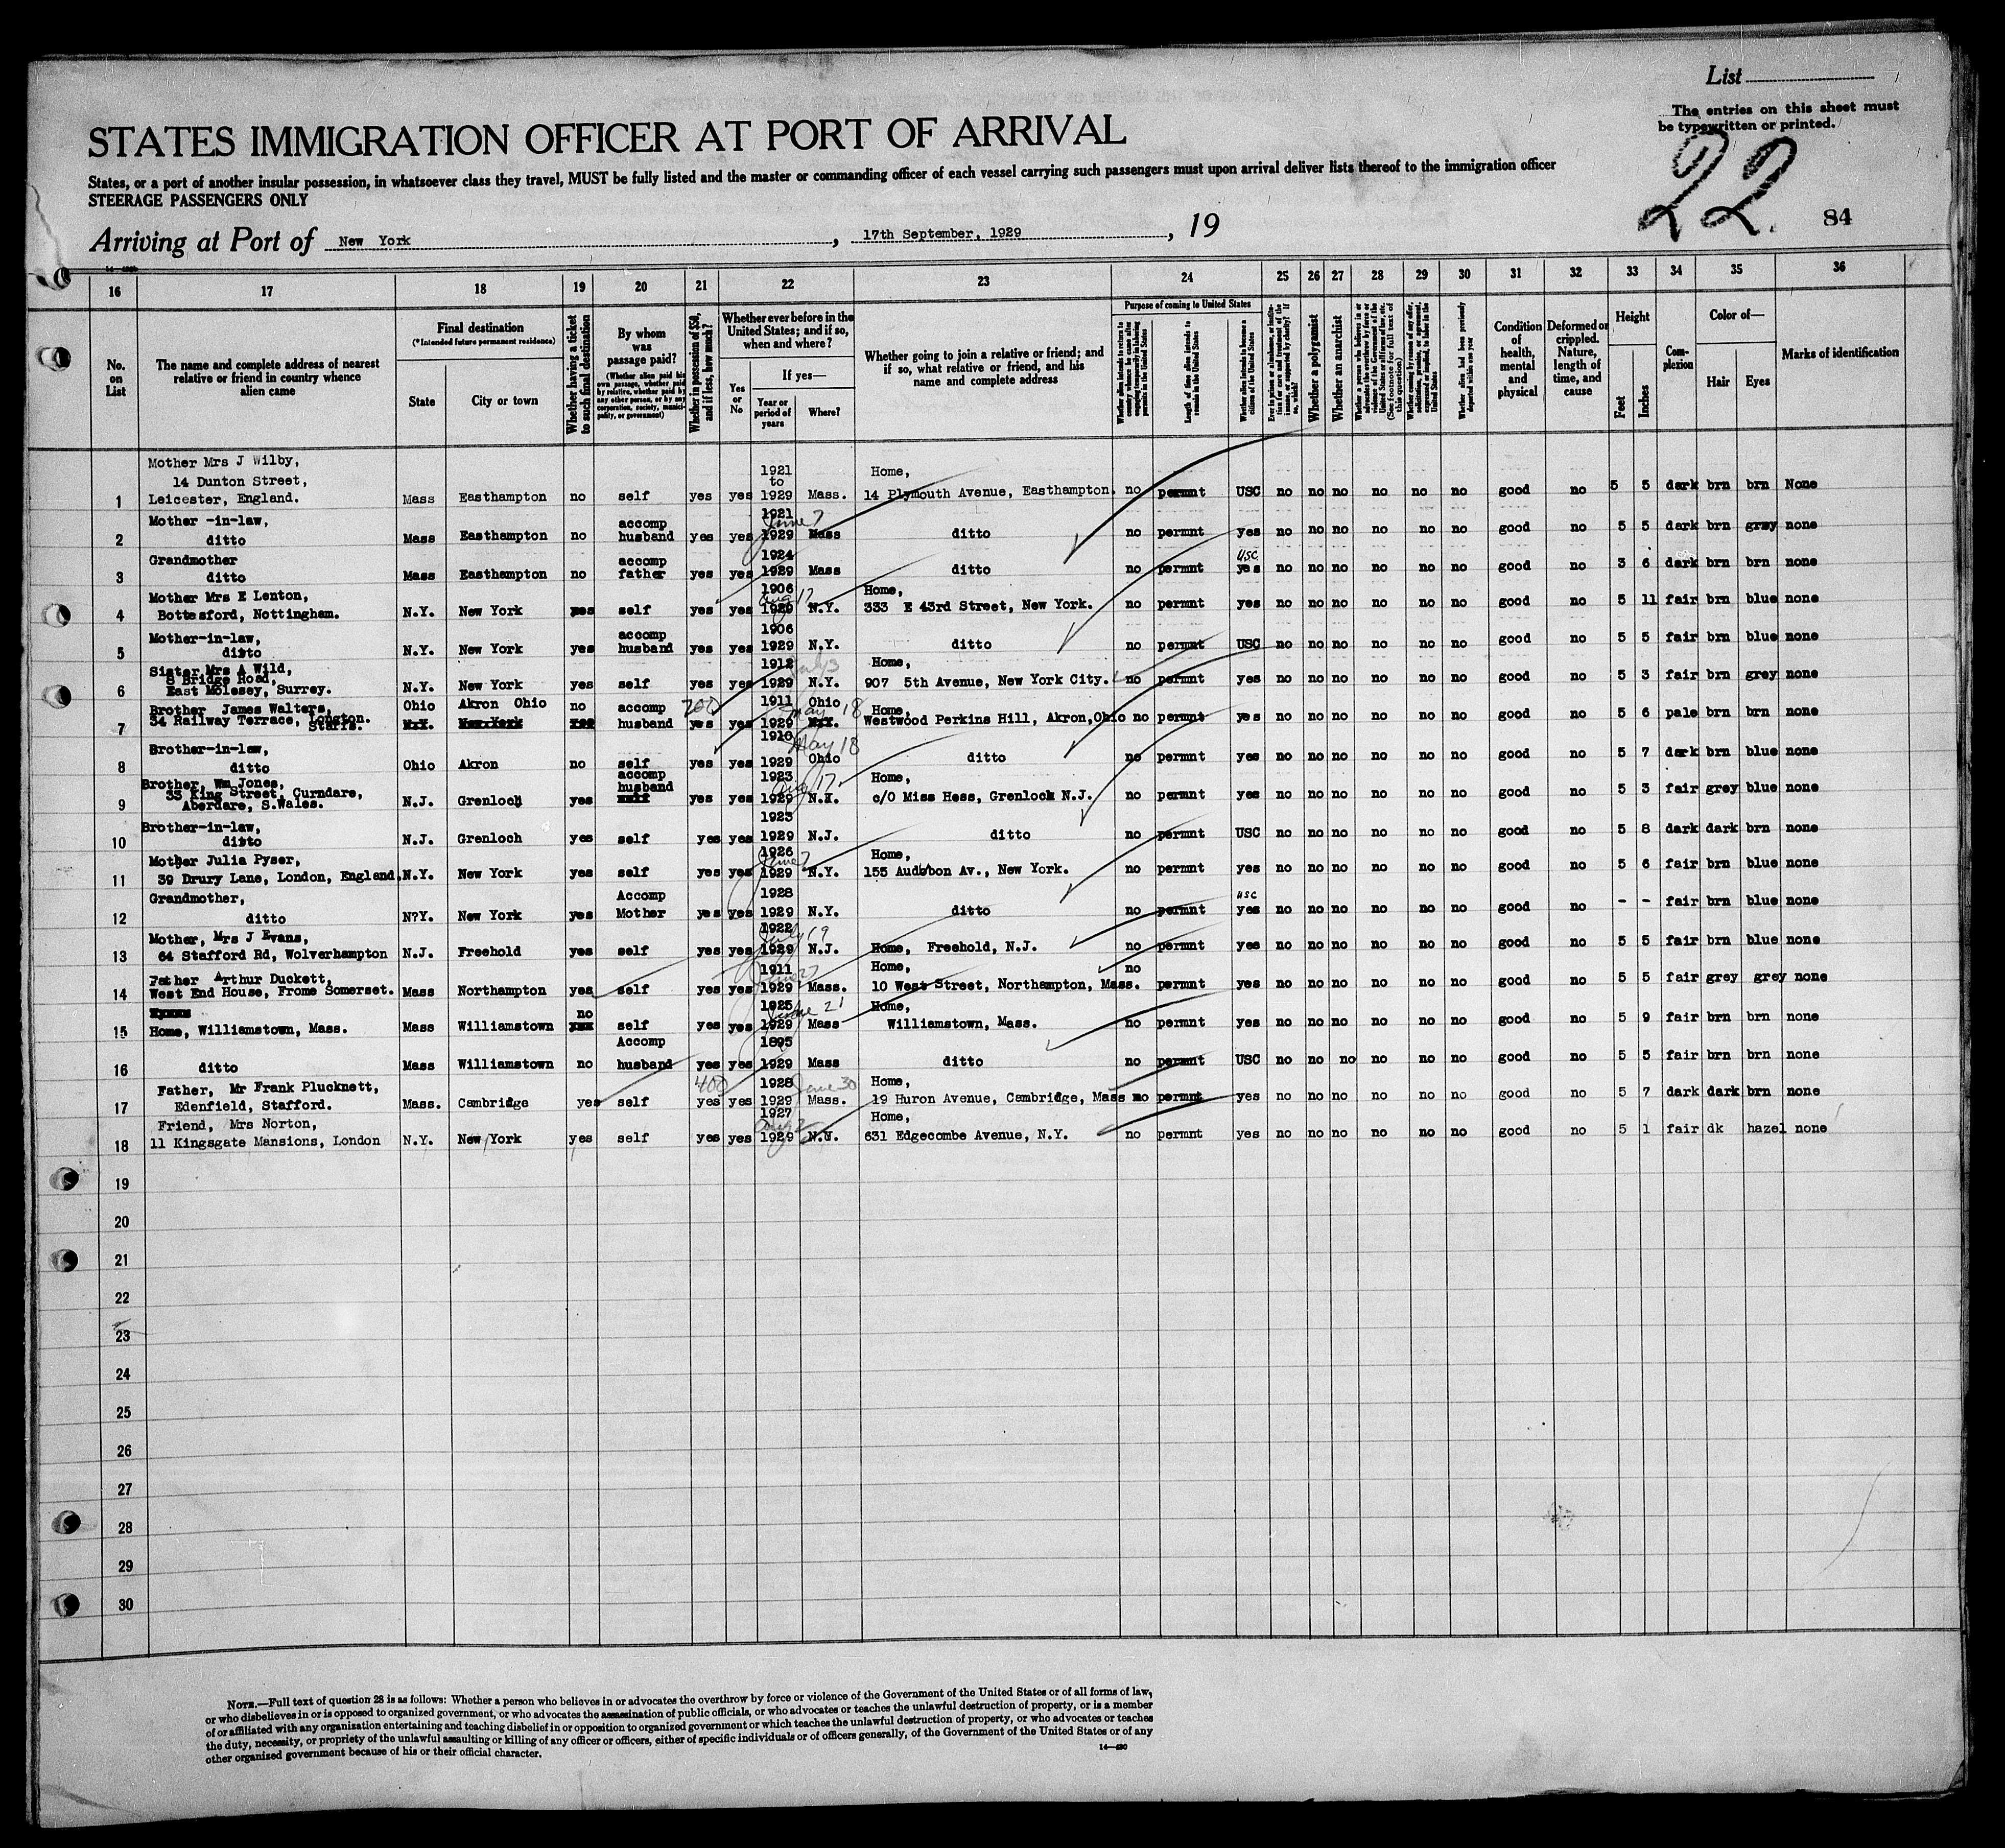 List
The entries on this sheet must
be typewritten or printed.
STATES IMMIGRATION OFFICER AT PORT OF ARRIVAL
22.
84
States, or a port of another insular possession, in whatsoever class they travel, MUST be fully listed and the master or commanding officer of each vessel carrying such passengers must upon arrival deliver lists thereof to the immigration officer
STEERAGE PASSENGERS ONLY
Arriving at Port of New York, 17th September, 1929, 19
16 17 18 19 20 21 22 23 24 25 26 27 28 29 30 31 32 33 34 35 36
No. on List
The name and complete address of nearest relative or friend in country whence alien came
Final destination
(*Intended future permanent residence)
State
City or town
Whether having a ticket to such final destination
By whom was passage paid?
(Whether alien paid his own passage, whether paid by relative, whether paid by any other person, or by any corporation, society, municipality, or government)
Whether in possession of $50, and if less, how much?
Whether ever before in the United States; and if so, when and where?
Yes or No
If yes—
Year or period of years
Where?
Whether going to join a relative or friend; and if so, what relative or friend, and his name and complete address
Purpose of coming to United States
Length of time alien intends to remain in the United States
Whether alien intends to become a citizen of the United States
Whether a polygamist
Whether an anarchist
Condition of health, mental and physical
Deformed or crippled. Nature, length of time, and cause
Height
Feet
Inches
Complexion
Color of—
Hair
Eyes
Marks of identification
Mother Mrs J Wilby,
14 Dunton Street,
1921 to
Home,
1 Leicester, England. Mass Easthampton no self yes yes 1929 Mass. 14 Plymouth Avenue, Easthampton. no permnt USC no no no no no no good no 5 5 dark brn brn None
Mother -in-law, accomp 1921 June 7
2 ditto Mass Easthampton no husband yes yes 1929 Mass ditto no permnt yes no no no no no no good no 5 5 dark brn grey none
Grandmother accomp 1924 USC
3 ditto Mass Easthampton no father yes yes 1929 Mass ditto no permnt yes no no no no no no good no 3 6 dark brn brn none
Mother Mrs E Lenton, 1906 Aug 17 Home,
4 Bottesford, Nottingham. N.Y. New York yes self yes yes 1929 N.Y. 333 E 43rd Street, New York. no permnt yes no no no no no no good no 5 11 fair brn blue none
Mother-in-law, accomp 1906
5 ditto N.Y. New York yes husband yes yes 1929 N.Y. ditto no permnt USC no no no no no no good no 5 5 fair brn blue none
Sister Mrs A Wild, 1912 Home,
8 Bridge Road,
6 East Molesey, Surrey. N.Y. New York yes self yes yes 1929 N.Y. 907 5th Avenue, New York City. no permnt yes no no no no no no good no 5 3 fair brn grey none
Brother James Walters, Ohio Akron Ohio no accomp 200 1911 Ohio May 18 Home,
7 34 Railway Terrace, Longton. Staffs. N.Y. New York yes husband yes yes 1929 N.Y. Westwood Perkins Hill, Akron, Ohio no permnt yes no no no no no no good no 5 6 pale brn brn none
Brother-in-law, 1910 May 18
8 ditto Ohio Akron no self yes yes 1929 Ohio ditto no permnt yes no no no no no no good no 5 7 dark brn blue none
Brother, Wm Jones, accomp husband 1923 Aug 17 Home,
33 King Street, Curndare,
9 Aberdare, S.Wales. N.J. Grenloch yes self yes yes 1929 N.J. c/O Miss Hess, Grenlock N.J. no permnt yes no no no no no no good no 5 3 fair grey blue none
Brother-in-law, 1923
10 ditto N.J. Grenloch yes self yes yes 1929 N.J. ditto no permnt USC no no no no no no good no 5 8 dark dark brn none
Mother Julia Pyser, 1926 June 7 Home,
11 39 Drury Lane, London, England. N.Y. New York yes self yes yes 1929 N.Y. 155 Audubon Av., New York. no permnt yes no no no no no no good no 5 6 fair brn blue none
Grandmother, Accomp 1928 USC
12 ditto N?Y. New York yes Mother yes yes 1929 N.Y. ditto no permnt yes no no no no no no good no - - fair brn blue none
Mother, Mrs J Evans, 1922 July 19
13 64 Stafford Rd, Wolverhampton N.J. Freehold yes self yes yes 1929 N.J. Home, Freehold, N.J. no permnt yes no no no no no no good no 5 5 fair brn blue none
Father Arthur Duckett, 1911 Home, no
14 West End House, Frome Somerset. Mass Northampton yes self yes yes 1929 Mass. 10 West Street, Northampton, Mass. permnt yes no no no no no no good no 5 5 fair grey grey none
no 1925 June 21 Home,
15 Home, Williamstown, Mass. Mass Williamstown self yes yes 1929 Mass Williamstown, Mass. no permnt yes no no no no no no good no 5 9 fair brn brn none
Accomp 1895
16 ditto Mass Williamstown no husband yes yes 1929 Mass ditto no permnt USC no no no no no no good no 5 5 fair brn brn none
Father, Mr Frank Plucknett, 400 1928 June 30 Home,
17 Edenfield, Stafford. Mass. Cambridge yes self yes yes 1929 Mass. 19 Huron Avenue, Cambridge, Mass no permnt yes no no no no no no good no 5 7 dark dark brn none
Friend, Mrs Norton, 1927 Home,
18 11 Kingsgate Mansions, London N.Y. New York yes self yes yes 1929 N.Y. 631 Edgecombe Avenue, N.Y. no permnt yes no no no no no no good no 5 1 fair dk hazel none
19
20
21
22
23
24
25
26
27
28
29
30
NOTE.—Full text of question 28 is as follows: Whether a person who believes in or advocates the overthrow by force or violence of the Government of the United States or of all forms of law,
or who disbelieves in or is opposed to organized government, or who advocates the assassination of public officials, or who advocates or teaches the unlawful destruction of property, or is a member
of or affiliated with any organization entertaining and teaching disbelief in or opposition to organized government or which teaches the unlawful destruction of property, or who advocates or teaches
the duty, necessity, or propriety of the unlawful assaulting or killing of any officer or officers, either of specific individuals or of officers generally, of the Government of the United States or of any
other organized government because of his or their official character.
14—480